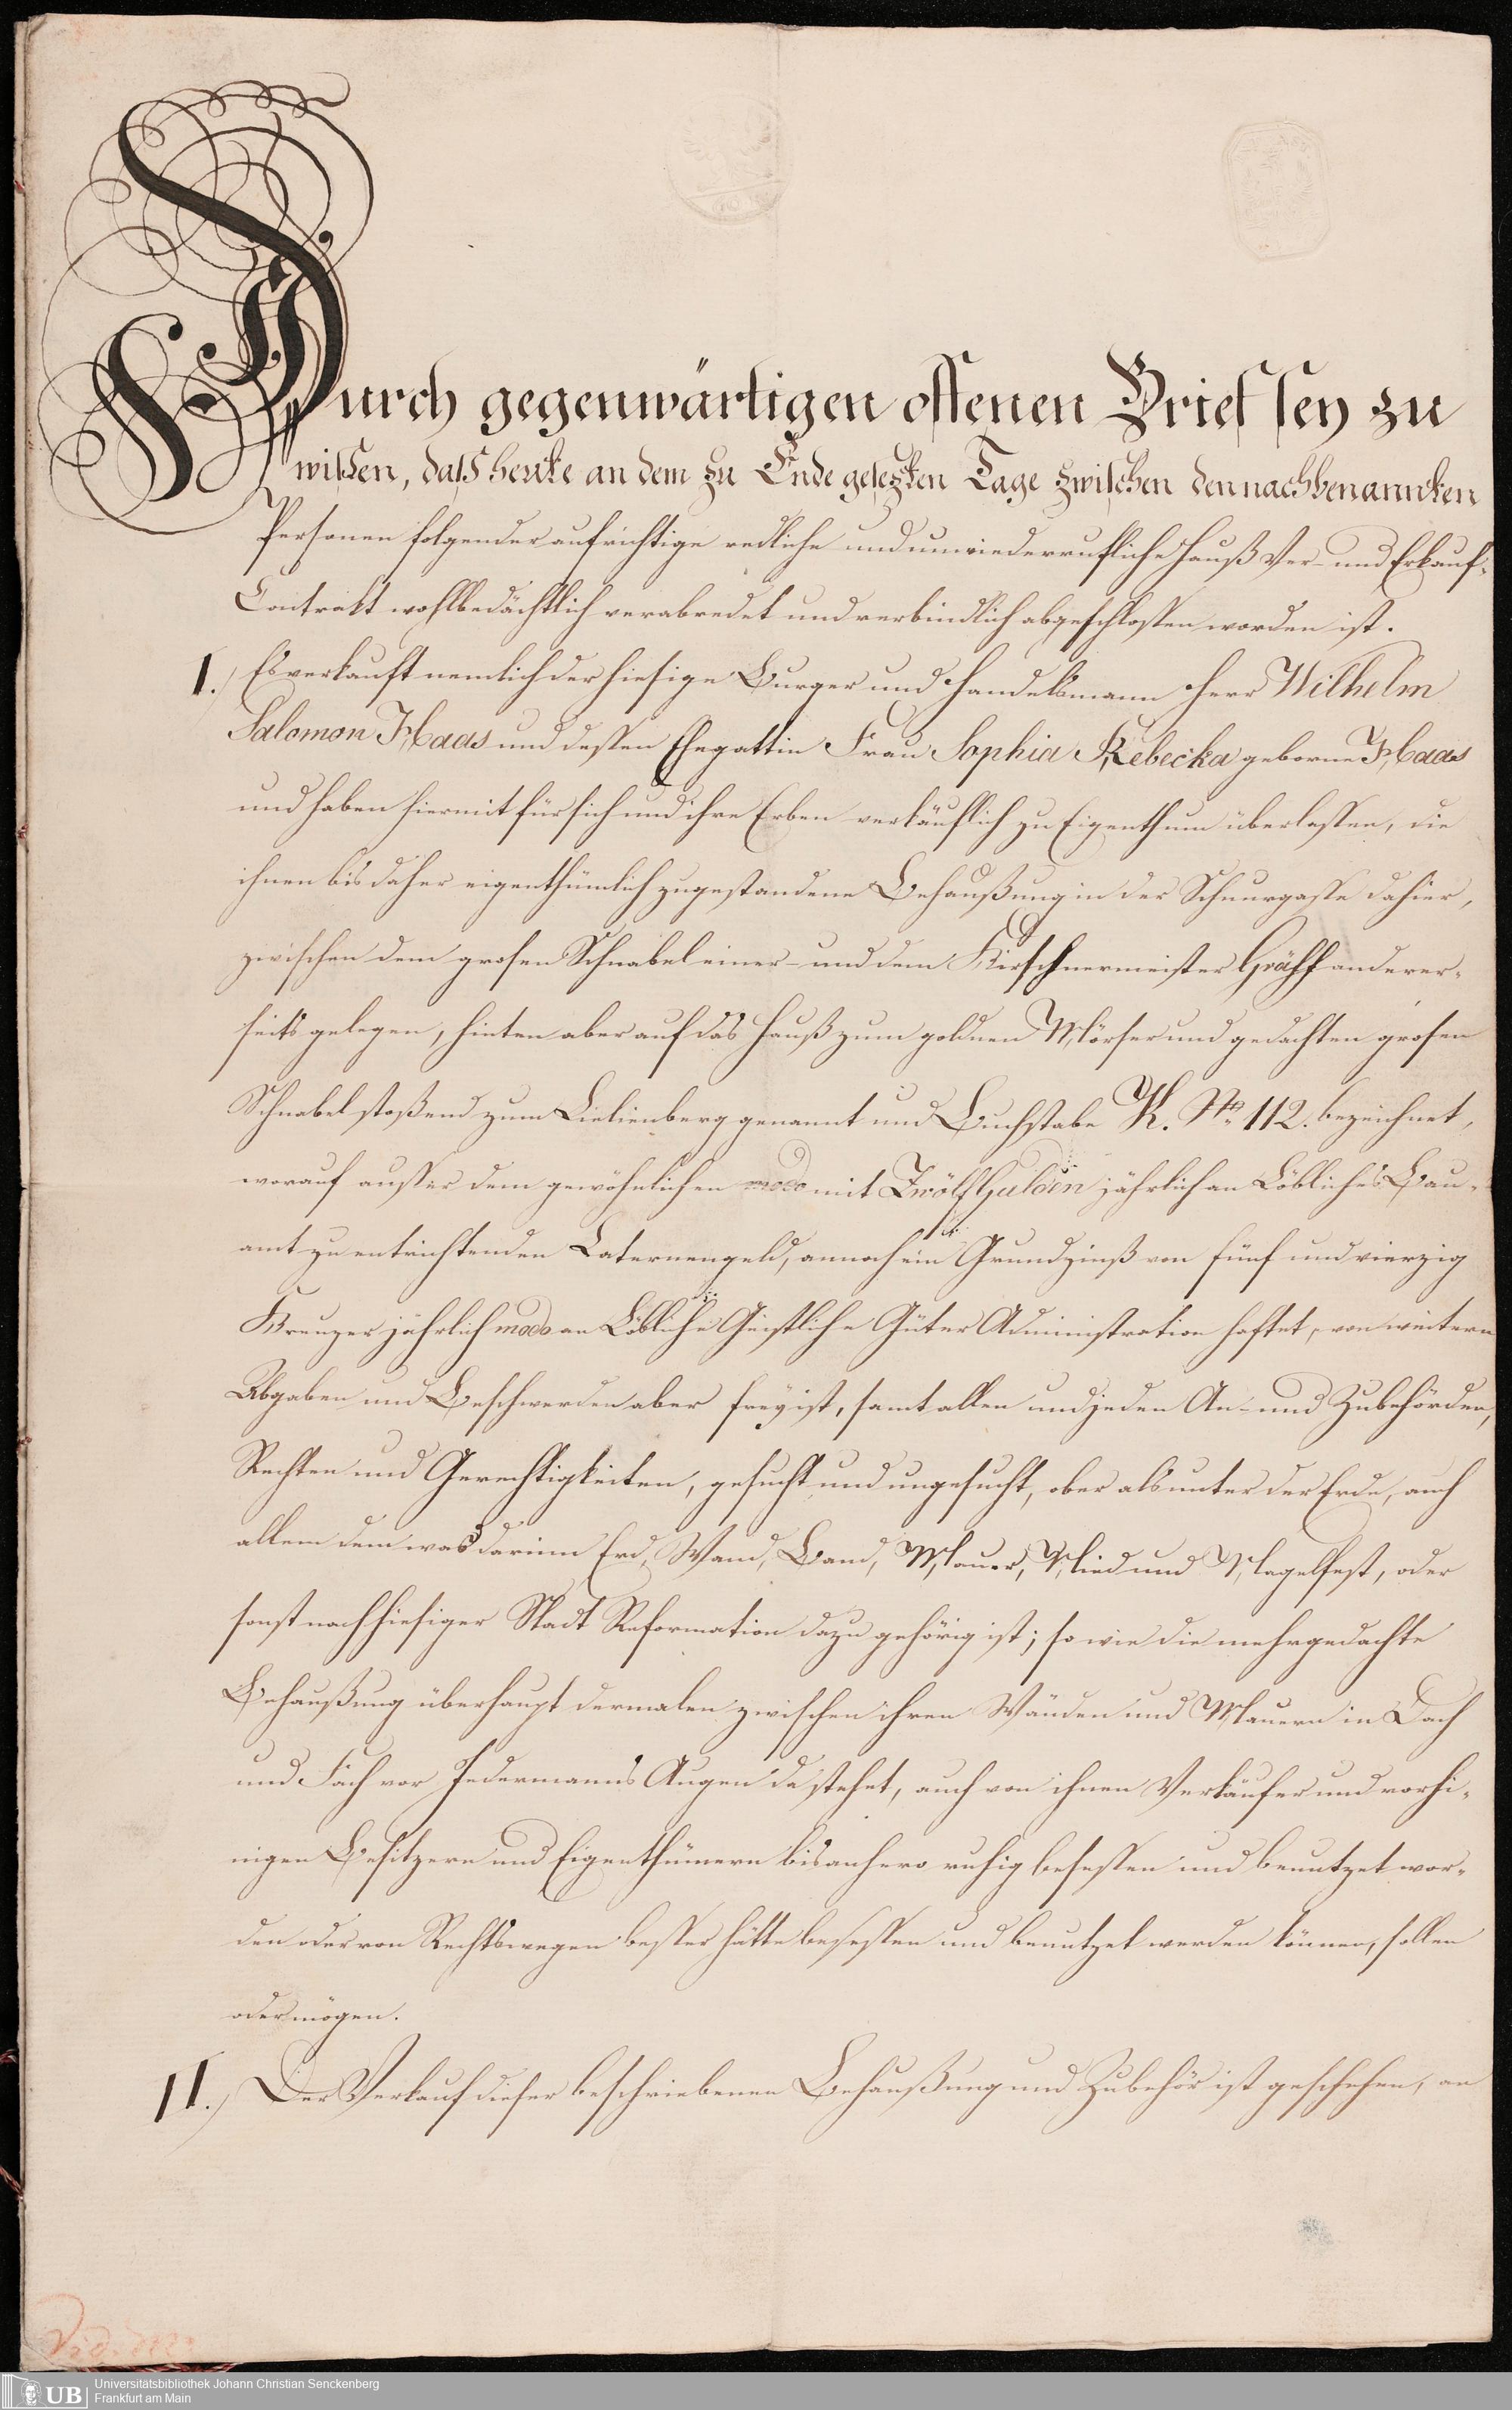 Durch gegenwärtigen offenen Brief sey zu
wißen, daß heute an dem zu Ende gesezten Tage zwischen den nachbenannten
Personen folgender aufrichtige redliche und unwiederrufliche Hauß Ver- und Erkauf-
Contrakt wohlbedächtlich verabredet und verbindlich abgeschlossen worden ist.
I.) Es verkauft nemlich der hiesige Burger und Handelsmann Herr Wilhelm
Salomon Haas und dessen Ehegattin Frau Sophia Rebecka geborne Haas
und haben hiermit für sich und ihre Erben verkäuflich zu Eigenthum überlassen, die
ihnen bis daher eigenthümlich zugestandene Behaußung in der Schnurgasse dahier,
zwischen dem grosen Schnabel einer- und dem Kirschnermeister Gräff anderer-
seits gelegen, hinten aber auf das Hauß zum goldnen Mörser und gedachten grosen
Schnabel stoßend zum Lielienberg genannt und Buchstabe K. No. 112. bezeichnet,
worauf ausser dem gewöhnlichen modo mit Zwölf Gulden jährlich an Löbliches Bau-
amt zu entrichtenden Laternengeld, annoch ein Grundzinß von fünf und vierzig
Kreuzer jährlich modo an Löbliche Geistliche Güter Administration haftet, von weitern
Abgaben und Beschwerden aber frey ist, samt allen und jeden An- und Zubehörden,
Rechten und Gerechtigkeiten, gesucht und ungesucht, ober als unter der Erde, auch
allem dem was darinn Erd, Wand, Band, Mauer, Nied und Nagelfest, oder
sonst nach hiesiger Stadt Reformation dazu gehörig ist; so wie die mehrgedachte
Behaußung überhaupt dermalen zwischen ihren Wänden und Mauern in Dach
und Fach vor Jedermanns Augen da stehet, auch von ihnen Verkäufer und vorhi-
nigen Besitzern und Eigenthümern bis anhero ruhig besessen und benutzet wor-
den oder von Rechtswegen besser hätte besessen und benutzet werden können, sollen
oder mögen.
II.) Der Verkauf dieser beschriebenen Behaußung und Zubehör ist geschehen, an
UB
Universitätsbibliothek Johann Christian Senckenberg
Frankfurt am Main